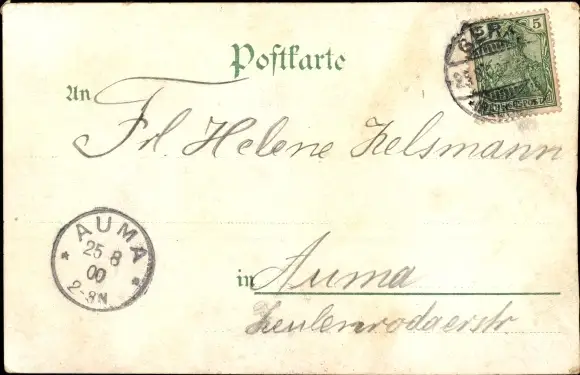 Postkarte
5
GERA
An
Frl. Helene Zelsmann
AUMA
25 8
00
2-3N
in Auma
Zeulenrodaerstr.